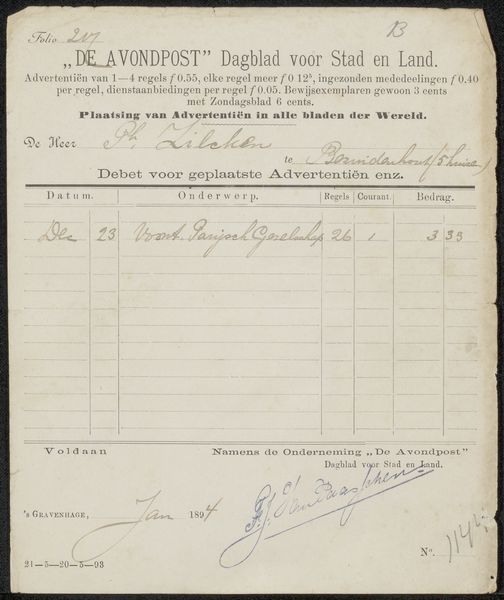 Folio 207
B
„DE AVONDPOST” Dagblad voor Stad en Land.
Advertentiën van 1—4 regels f 0.55, elke regel meer f 0 12⁵, ingezonden mededeelingen f 0.40
per regel, dienstaanbiedingen per regel f 0.05. Bewijsexemplaren gewoon 3 cents
met Zondagsblad 6 cents.
Plaatsing van Advertentiën in alle bladen der Wereld.
De Heer Ph. Zilcken
te Bezuidenhout
Debet voor geplaatste Advertentiën enz.
Datum. Onderwerp. Regels Courant. Bedrag.
Dec 23 Voorst. Parijsch Gezelschap 26 1 3 35
Voldaan Namens de Onderneming „De Avondpost”
Dagblad voor Stad en Land.
's GRAVENHAGE, Jan 1894
N°. 1144
21—5—20—5—93